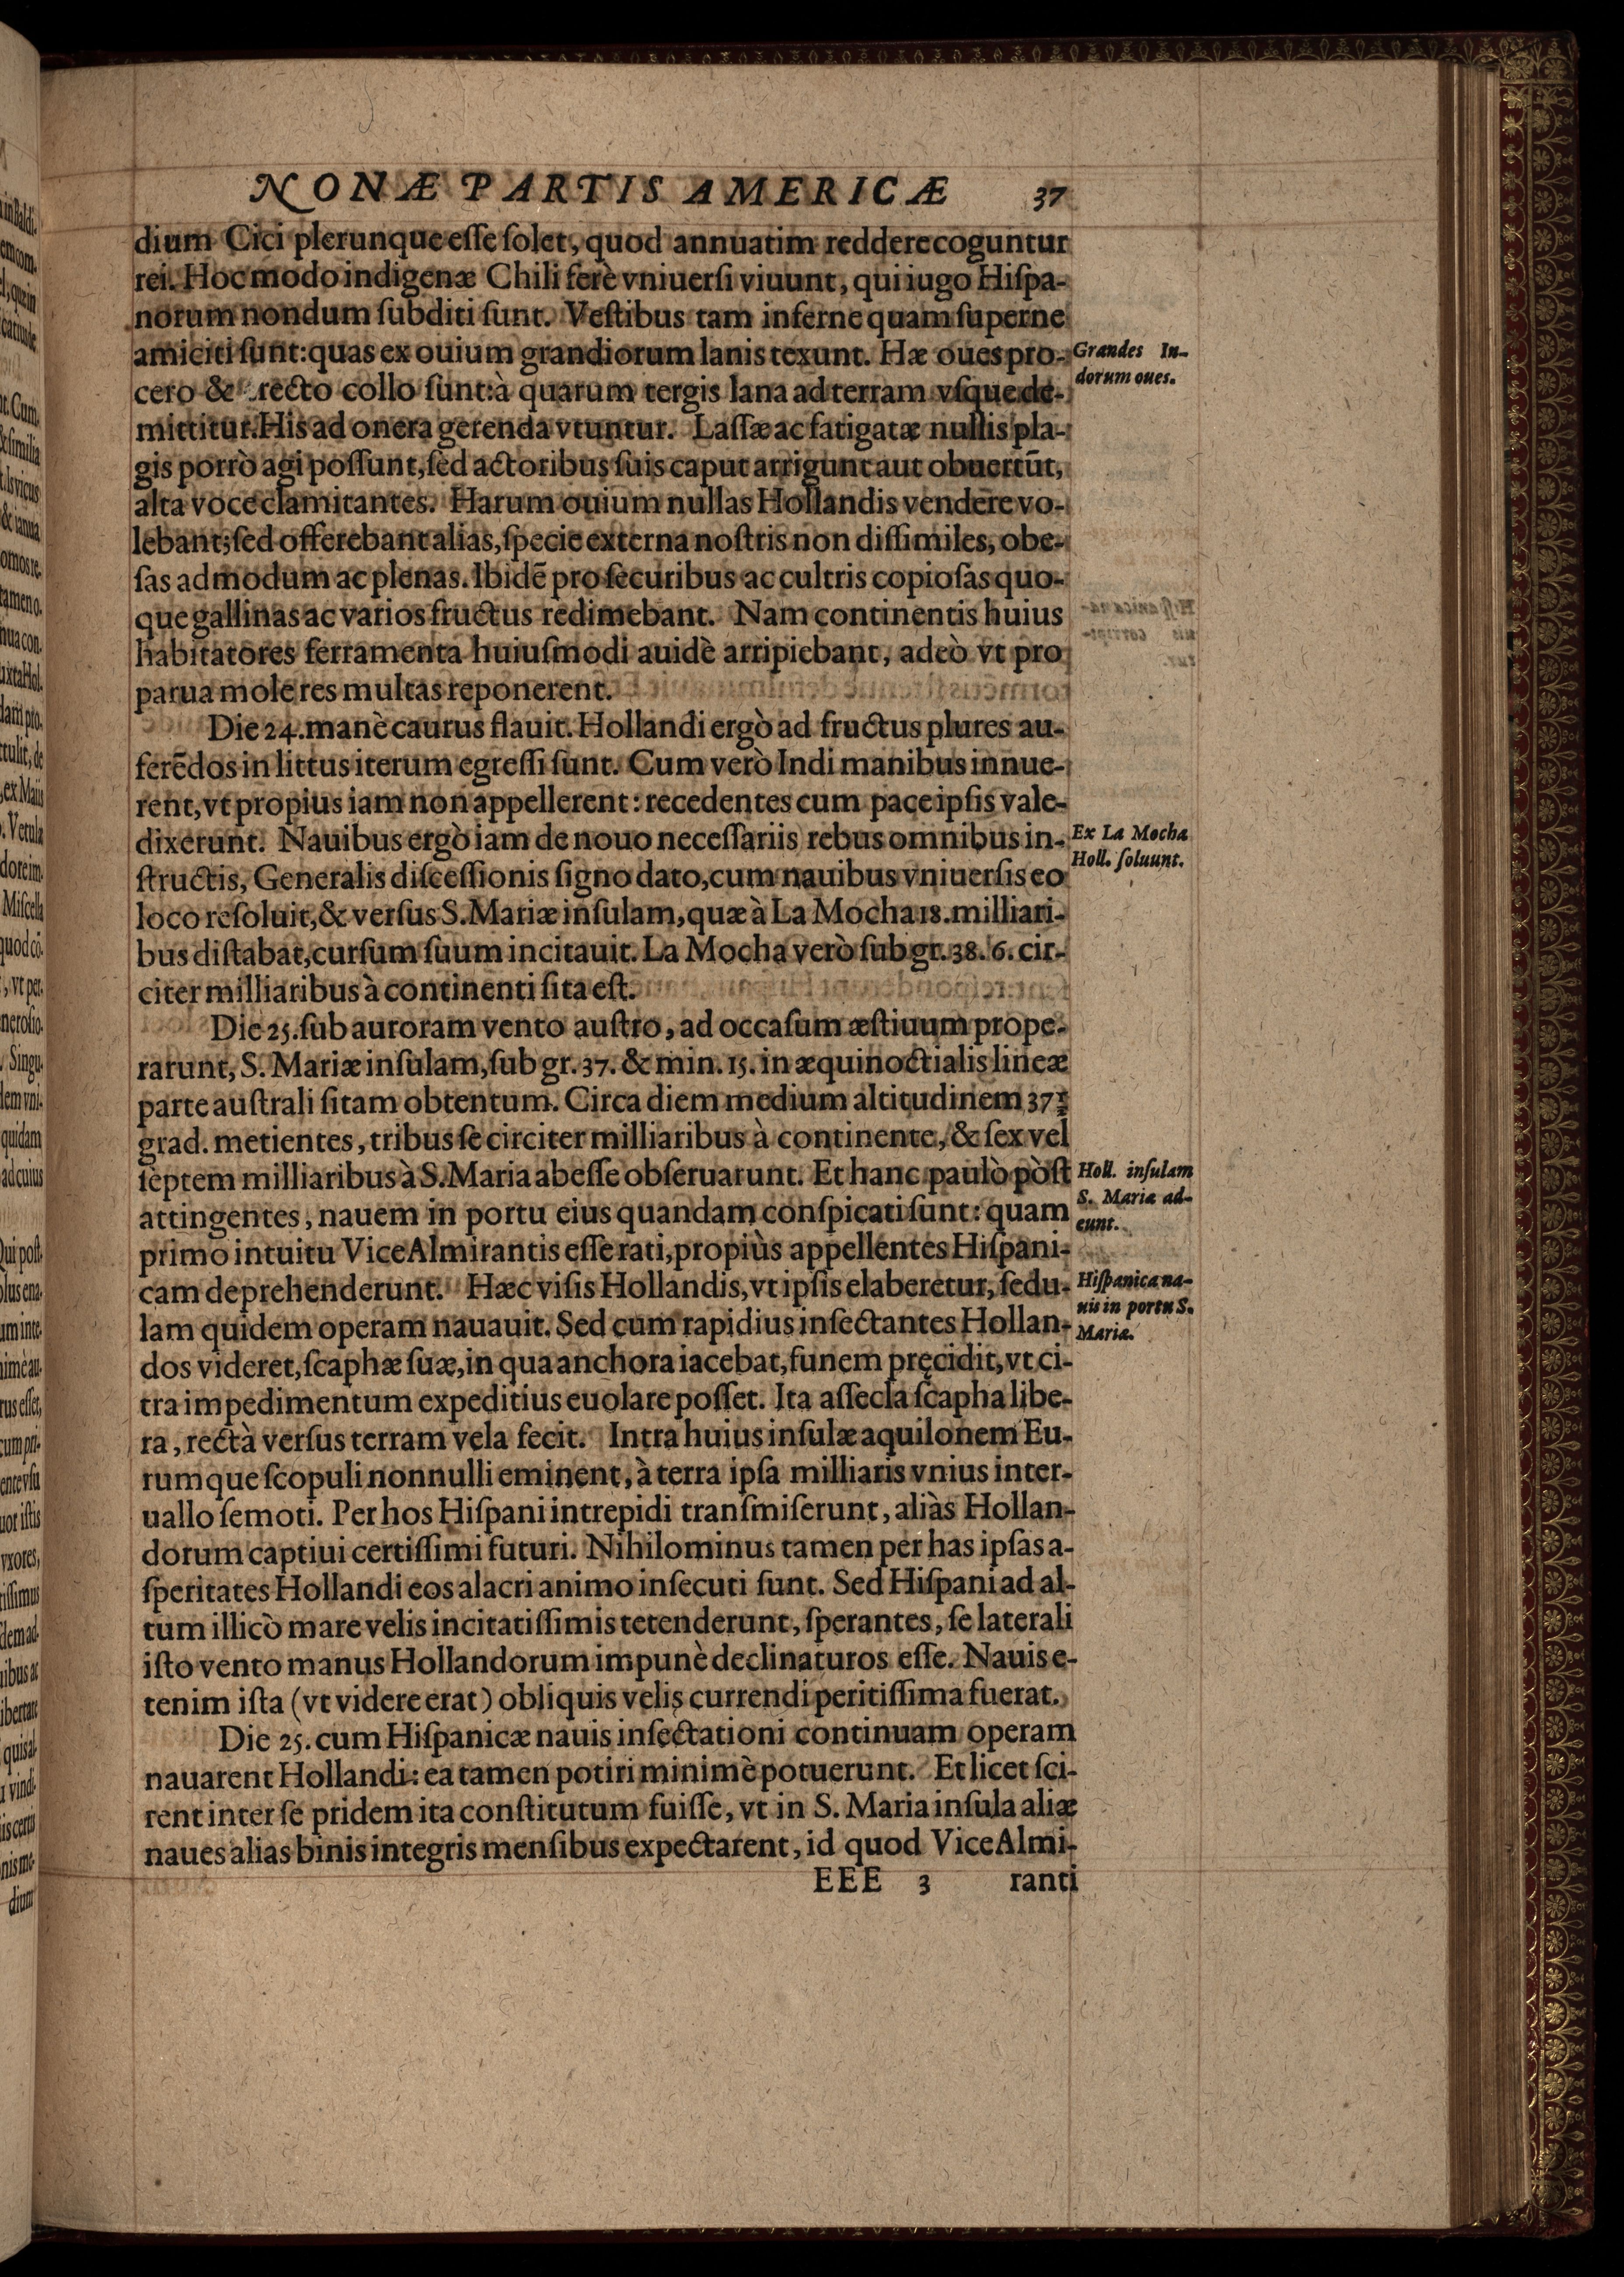 NONÆ PARTIS AMERICÆ 37
dium Cici plerunque eſſe ſolet, quod annuatim reddere coguntur
rei. Hoc modo indigenæ Chili ferè vniuerſi viuunt, qui iugo Hiſpa-
norum nondum ſubditi ſunt. Veſtibus tam inferne quam ſuperne
amiciti ſunt: quas ex ouium grandiorum lanis texunt. Hæ oues pro-
Grandes In-
dorum oues.
cero & recto collo ſunt: à quarum tergis lana ad terram vſque de-
mittitur. His ad onera gerenda vtuntur. Laſſæ ac fatigatæ nullis pla-
gis porrò agi poſſunt, ſed actoribus ſuis caput arrigunt aut obuertūt,
alta voce clamitantes. Harum ouium nullas Hollandis vendere vo-
lebant; ſed offerebant alias, ſpecie externa noſtris non diſſimiles, obe-
ſas admodum ac plenas. Ibidē pro ſecuribus ac cultris copioſas quo-
que gallinas ac varios fructus redimebant. Nam continentis huius
habitatores ferramenta huiuſmodi auidè arripiebant, adeò vt pro
parua mole res multas reponerent.
Die 24. manè caurus flauit. Hollandi ergò ad fructus plures au-
ferēdos in littus iterum egreſſi ſunt. Cum verò Indi manibus innue-
rent, vt propius iam non appellerent: recedentes cum pace ipſis vale-
dixerunt. Nauibus ergò iam de nouo neceſſariis rebus omnibus in-
Ex La Mocha
Holl. ſoluunt.
ſtructis, Generalis diſceſſionis ſigno dato, cum nauibus vniuerſis eo
loco reſoluit, & verſus S. Mariæ inſulam, quæ à La Mocha 18. milliari-
bus diſtabat, curſum ſuum incitauit. La Mocha verò ſub gr. 38. 6. cir-
citer milliaribus à continenti ſita eſt.
Die 25. ſub auroram vento auſtro, ad occaſum æſtiuum prope-
rarunt, S. Mariæ inſulam, ſub gr. 37. & min. 15. in æquinoctialis lineæ
parte auſtrali ſitam obtentum. Circa diem medium altitudinem 37
grad. metientes, tribus ſe circiter milliaribus à continente, & ſex vel
ſeptem milliaribus à S. Maria abeſſe obſeruarunt. Et hanc paulò pòſt
Holl. inſulam
S. Maria ad-
eunt.
attingentes, nauem in portu eius quandam conſpicati ſunt: quam
primo intuitu ViceAlmirantis eſſe rati, propiùs appellentes Hiſpani-
cam deprehenderunt. Hæc viſis Hollandis, vt ipſis elaberetur, ſedu-
Hiſpanica na-
uis in portu S.
Maria.
lam quidem operam nauauit. Sed cum rapidius inſectantes Hollan-
dos videret, ſcaphæ ſuæ, in qua anchora iacebat, funem pręcidit, vt ci-
tra impedimentum expeditius euolare poſſet. Ita aſſecla ſcapha libe-
ra, rectà verſus terram vela fecit. Intra huius inſulæ aquilonem Eu-
rumque ſcopuli nonnulli eminent, à terra ipſa milliaris vnius inter-
uallo ſemoti. Per hos Hiſpani intrepidi tranſmiſerunt, aliàs Hollan-
dorum captiui certiſſimi futuri. Nihilominus tamen per has ipſas a-
ſperitates Hollandi eos alacri animo inſecuti ſunt. Sed Hiſpani ad al-
tum illicò mare velis incitatiſſimis tetenderunt, ſperantes, ſe laterali
iſto vento manus Hollandorum impunè declinaturos eſſe. Nauis e-
tenim iſta (vt videre erat) obliquis velis currendi peritiſſima fuerat.
Die 25. cum Hiſpanicæ nauis inſectationi continuam operam
nauarent Hollandi: ea tamen potiri minimè potuerunt. Et licet ſci-
rent inter ſe pridem ita conſtitutum fuiſſe, vt in S. Maria inſula aliæ
naues alias binis integris menſibus expectarent, id quod ViceAlmi-
EEE 3 ranti